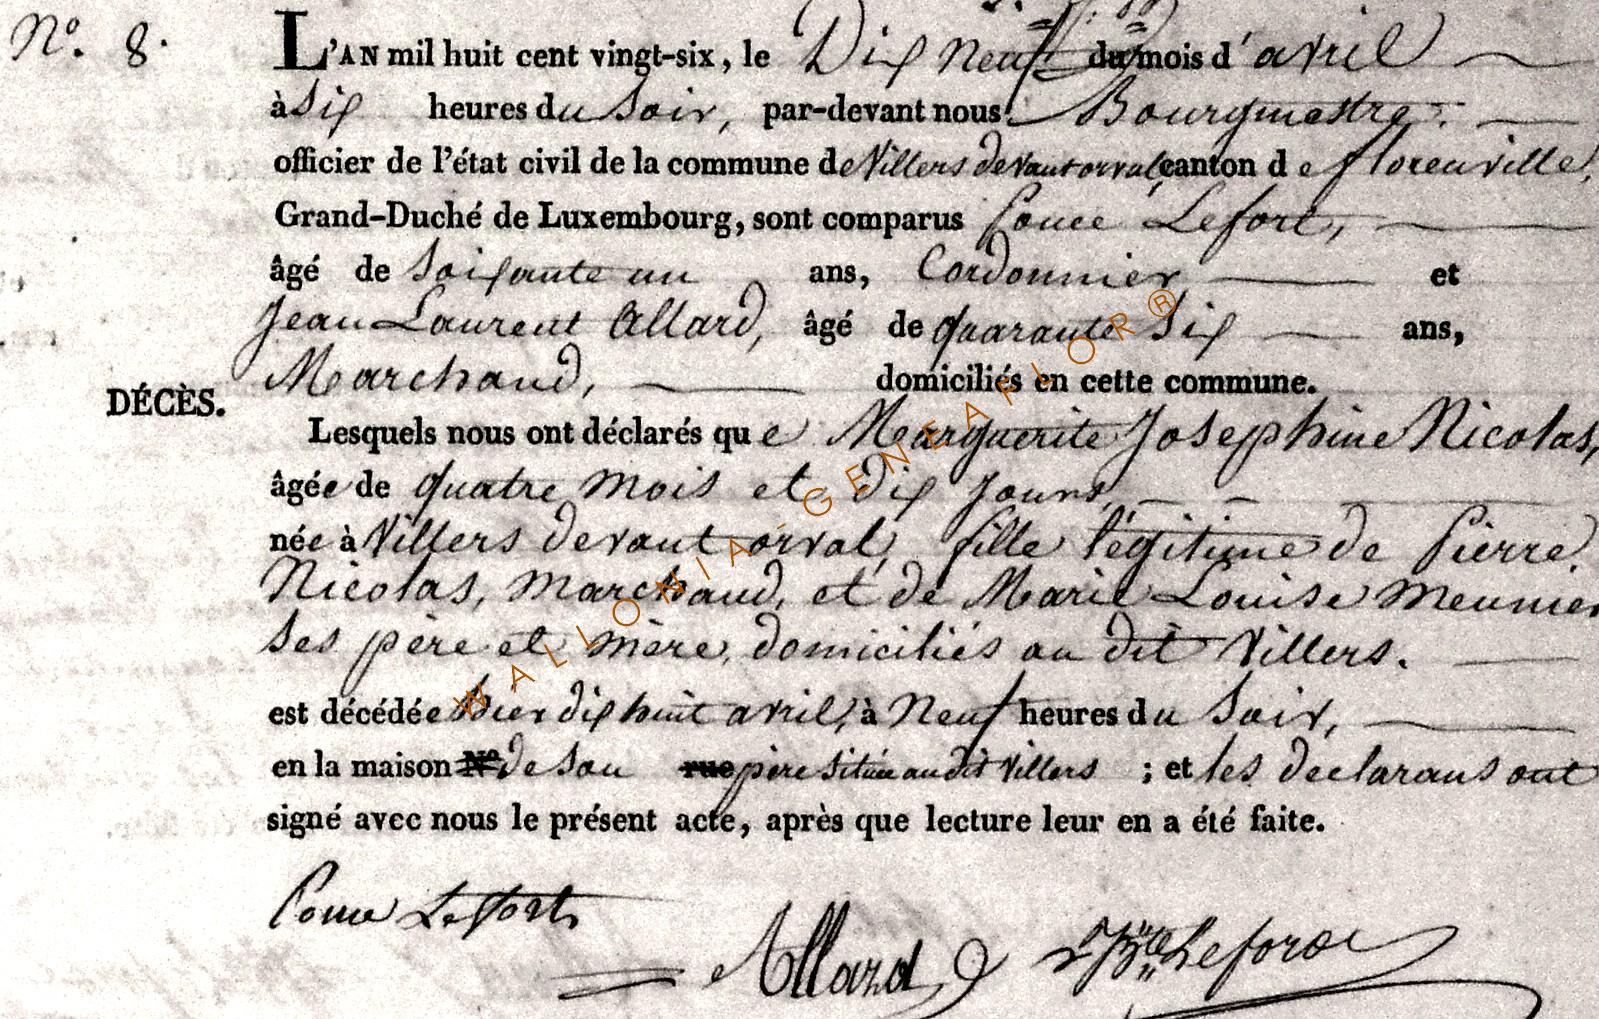 N°. 8.
L'AN mil huit cent vingt-six, le Dix Neuf du mois d'avril
à Six heures du Soir, par-devant nous Bourgmestre.
officier de l'état civil de la commune de Villers devant orval, canton de florenville,
Grand-Duché de Luxembourg, sont comparus Come Lefort,
âgé de Soixante un ans, Cordonnier et
Jean Laurent Allard, âgé de quarante Six ans,
Marchand, domiciliés en cette commune.
DÉCÈS.
Lesquels nous ont déclarés que Marguerite Josephine Nicolas,
âgée de quatre mois et dix jours,
née à Villers devant orval, fille légitime de Pierre
Nicolas, marchand, et de Marie Louise Meunier
Ses père et mère, domiciliés au dit Villers.
est décédée hier dix huit avril, à Neuf heures du Soir,
en la maison N° de Son rue père située au dit Villers ; et les declarans ont
signé avec nous le présent acte, après que lecture leur en a été faite.
Come Lefort
Allard Lefort
WALLONIA-GENEAFLOR®